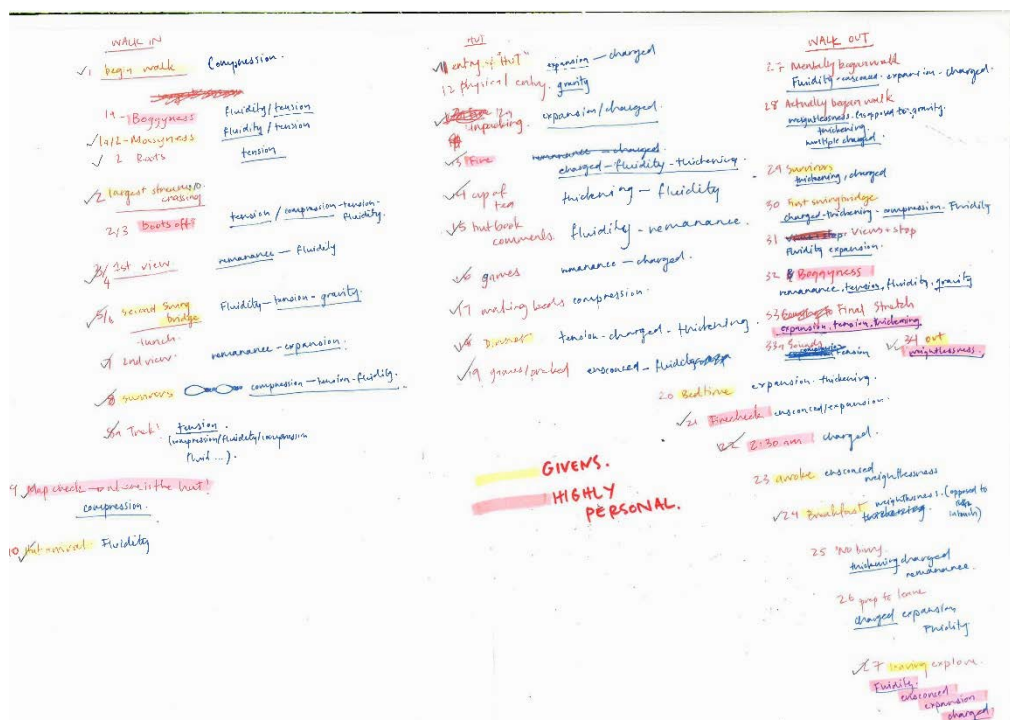 WALK IN
✓1 begin walk Compression.
1a - Boggyness fluidity/tension
✓1a/2 - Mossyness fluidity/tension
✓ 2 Roots tension
✓2 largest stream/
crossing
2/3 boots off! tension/compression-tension-
fluidity.
3/4 1st view. remanance — fluidity
✓5/6 second swing Fluidity-tension-gravity.
bridge
-lunch-
7 2nd view. remanance-expansion.
✓8 survivors compression-tension-fluidity.
8a Track! tension.
(compression/fluidity/compression
fluid...).
9 Map check - where is the hut!
compression.
10 Hut arrival Fluidity
HUT
11 entry of "HUT" expansion — charged
12 physical entry. gravity
12a
unpacking. expansion/charged
✓13 Fire remanance - charged
charged-fluidity-thickening.
✓14 cup of thickening — fluidity
tea
✓15 hut book
comments. fluidity - remanance.
✓16 games remanance — charged.
✓17 making beds compression.
✓18 Dinner tension-charged-thickening.
✓19 games/ ensconced-fluidity
20 Bedtime expansion-thickening.
✓21 Firecheck ensconced/expansion.
22 2:30am charged.
23 awoke ensconced
weightlessness
✓24 Breakfast weightlessness. (opposed to
thickening.
25 no hurry.
thickening charged
remanance.
26 prep to leave
charged expansion
Fluidity
✓27 leaving explore.
Fluidity.
ensconced
expansion
charged.
GIVENS.
HIGHLY
PERSONAL.
WALK OUT
27 Mentally began walk
Fluidity-ensconced-expansion-charged.
28 Actually began walk
weightlessness. (as opposed to gravity.
thickening.
multiple charged.
29 Survivors
thickening, charged
30 first swing bridge
charged-thickening-compression. Fluidity
31 Views + stop
Fluidity expansion.
32 Boggyness
remanance, tension, fluidity, gravity
33 to Final Stretch
expansion, tension, thickening.
33a Sounds
tension
34 out
weightlessness.